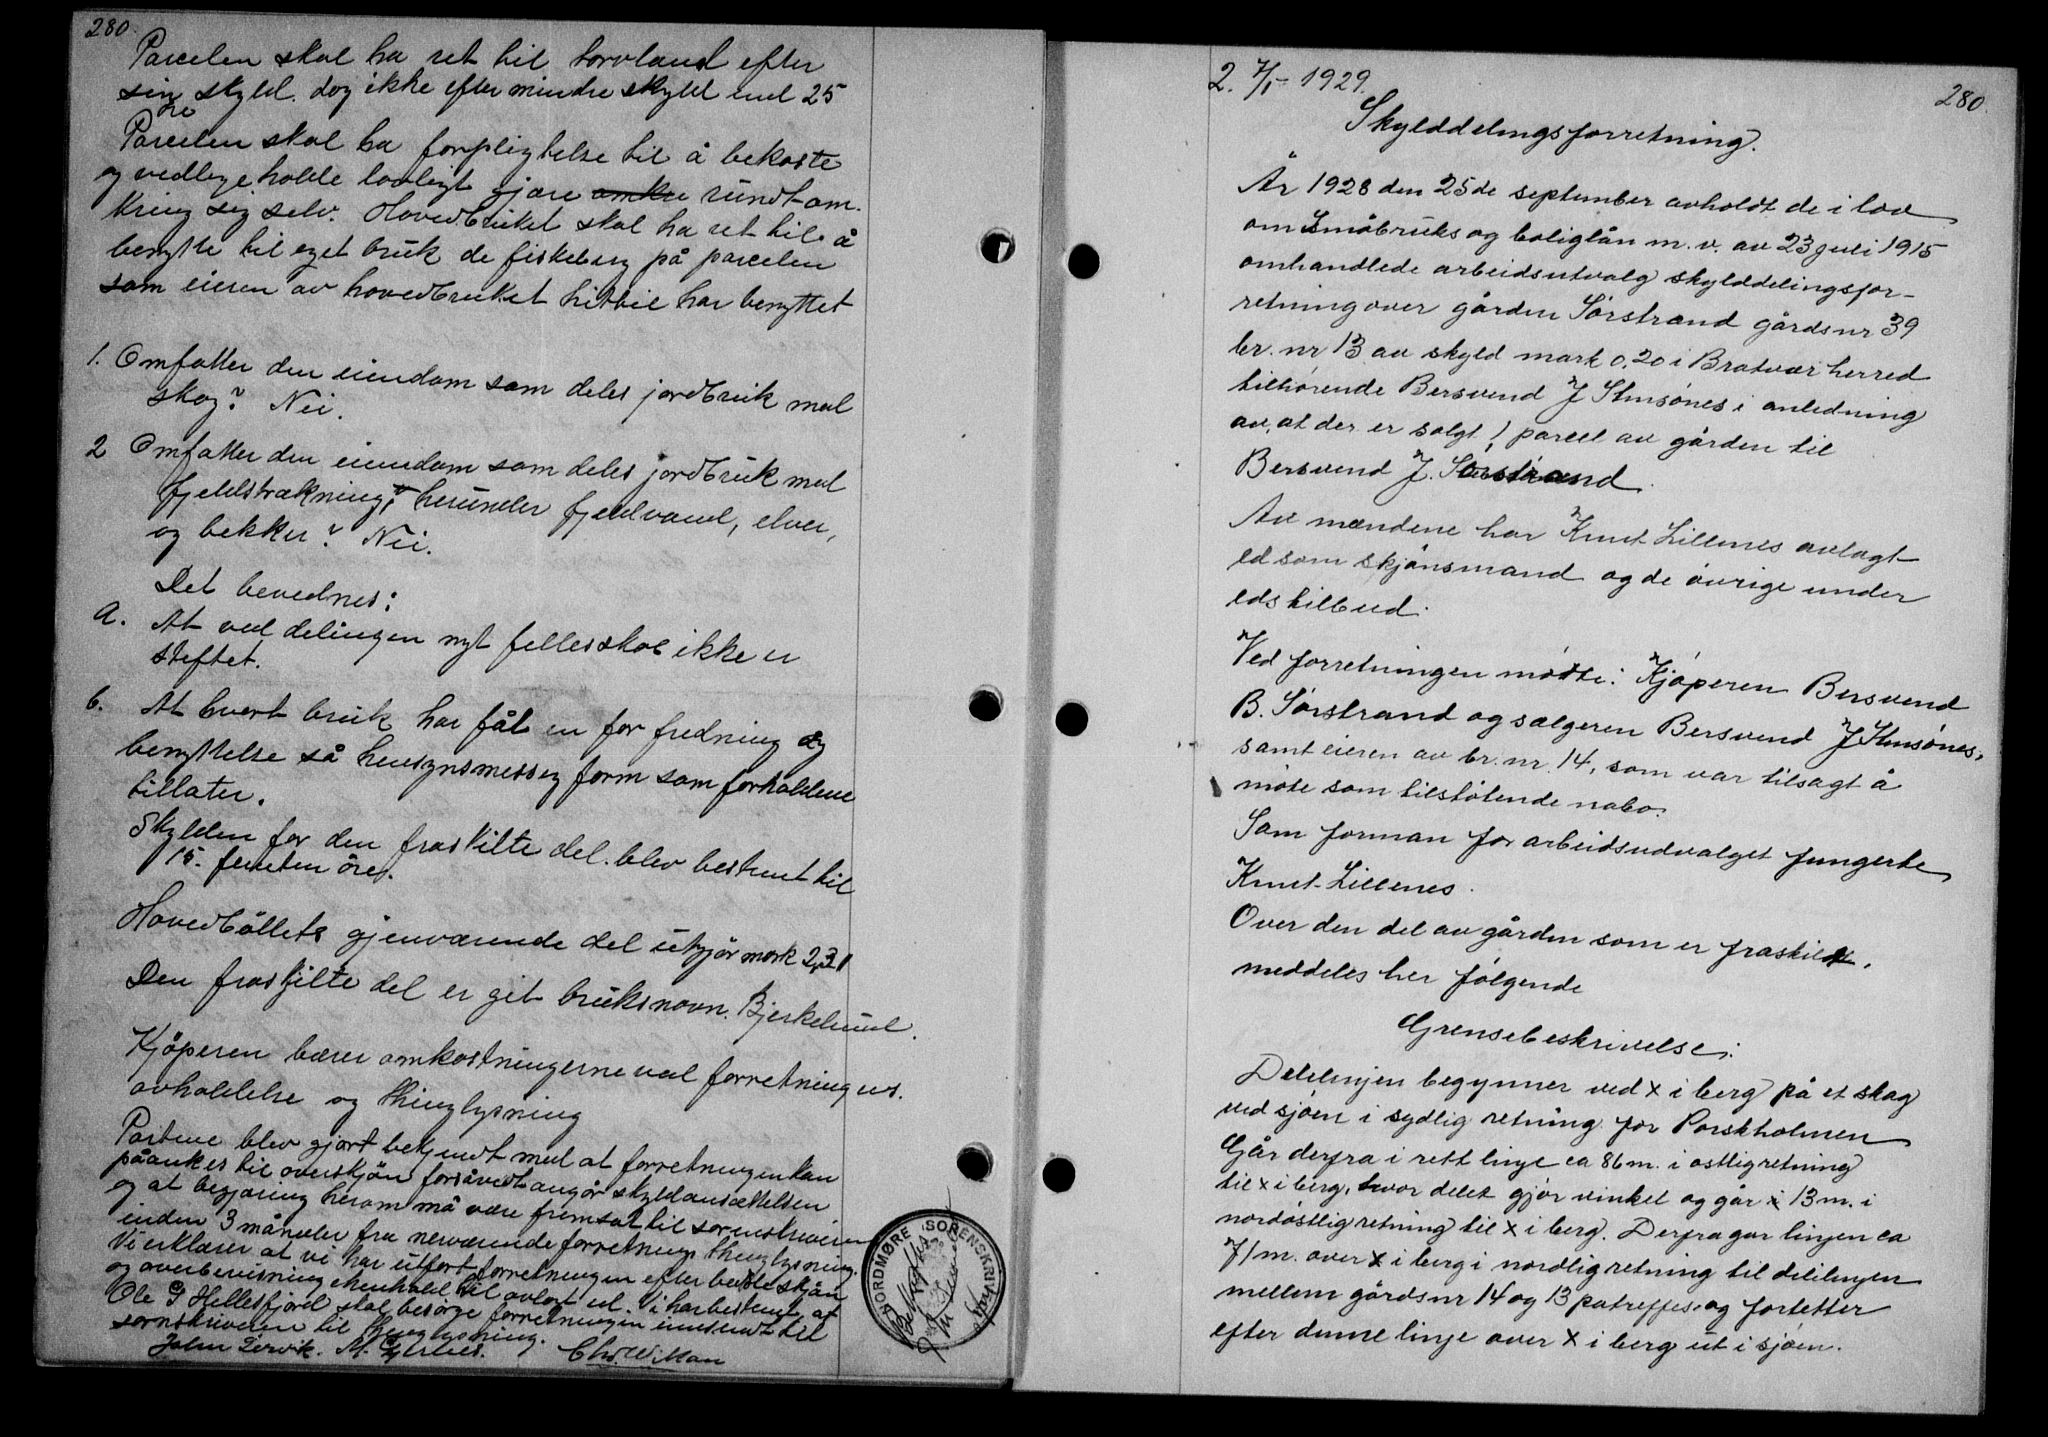 280.
Parcelen skal ha ret til torvland efter
sin skyld. dog ikke efter mindre skyld end 25
öre
Parcelen skal ha forpligtelse til å bekoste
og vedlige holde lovligt gjære omkr rundt om-
kring sig selv. Hovedbruket skal ha ret til å
benytte til eget bruk de fiskeberg på parcelen
som eieren av hovedbruket hittil har benyttet
1. Omfatter den eiendom som deles jordbruk med
skog? Nei.
2 Omfatter den eiendom som deles jordbruk med
fjeldstrækning, herunder fjeldvand, elver,
og bekker? Nei.
Det bevednes:
a. At ved delingen nyt fellesskab ikke er
stiftet.
b. At hvert bruk har fåt en for fredning og
benyttelse så hensynsmessig form som forholdene
tillater.
Skylden for den fraskilte del. blev bestemt til
15- femten öre.
Hovedbôllets gjenværende del utgjör mark 2,31
Den fraskilte del er git bruksnavn. Bjerkelund.
Kjöperen bærer omkostningerne ved forretningens.
avholdelse og thinglysning
Partene blev gjort bekjendt med at forretningen kan
påankes til overskjön forsåvidt angår skyldansættelsen
og at begjæring herom må være fremsat til sorenskriveren
inden 3 måneder fra nerværende forretnings thinglysning.
Vi erklærer at vi har utfört forretningen efter bedste skjön
og overbevisning i henhold til avlagt ed. Vi har bestemt at
Ole G Hellesfjord skal besörge forretningen innsendt til
sornskriveren til thinglysning.
John Lervik. M. Chr. Wikan
NORDMØRE SORENSKRIVERI
2. 7/1- 1929.
280
Skylddelingsforretning.
År 1928 den 25de september avholdt de i lov
om Småbruks og boliglån m. v. av 23 juli 1915
omhandlede arbeidsutvalg skylddelingsfor-
retning over gården Sörstrand gårdsnr 39
br. nr 13 av skyld mark 0,20 i Bratvær herred
tilhörende Bersvend J Stensönes i anledning
av, at der er solgt 1 parcel av gården til
Bersvend J. Sörstrand
Av mændene har Knut Lillenes avlagt
ed som skjönsmand og de övrige under
eds tilbud.
Ved forretningen mötte: Kjöperen Bersvend
B. Sörstrand og sælgeren Bersvend J Stensönes,
samt eieren av br. nr. 14, som var tilsagt å
möte som tilstötende nabo.
Som forman for arbeidsudvalget fungerte
Knut Lillenes.
Over den del av gården som er fraskilt,
meddeles her fölgende
Grensebeskrivelse:
Delelinjen begynner ved x i berg på et skag
ved sjöen i sydlig retning for Porskholmen
Går derfra i rett linje ca 86 m. i ostlig retning
til x i berg, hvor delet gjör vinkel og går i 13 m. i
nordöstlig retning til x i berg. Derfra går linjen ca
71 m. over x i berg i nordlig retning til delelinjen
mellem gårdsnr 14 og 13 påtreffes, og forsetter
efter denne linje over x i berg ut i sjöen.